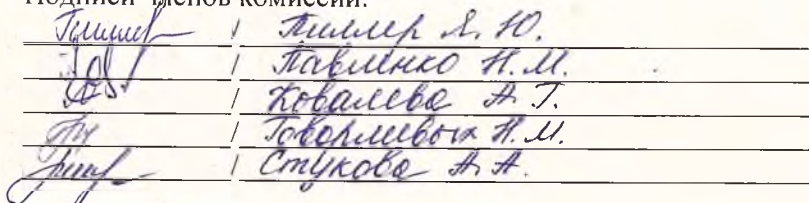 Подписи членов комиссии:
/ Пиллер Я. Ю.
/ Павленко Н. М.
/ Ковалева А. Т.
/ Говорливых Н. М.
/ Стукова А. А.